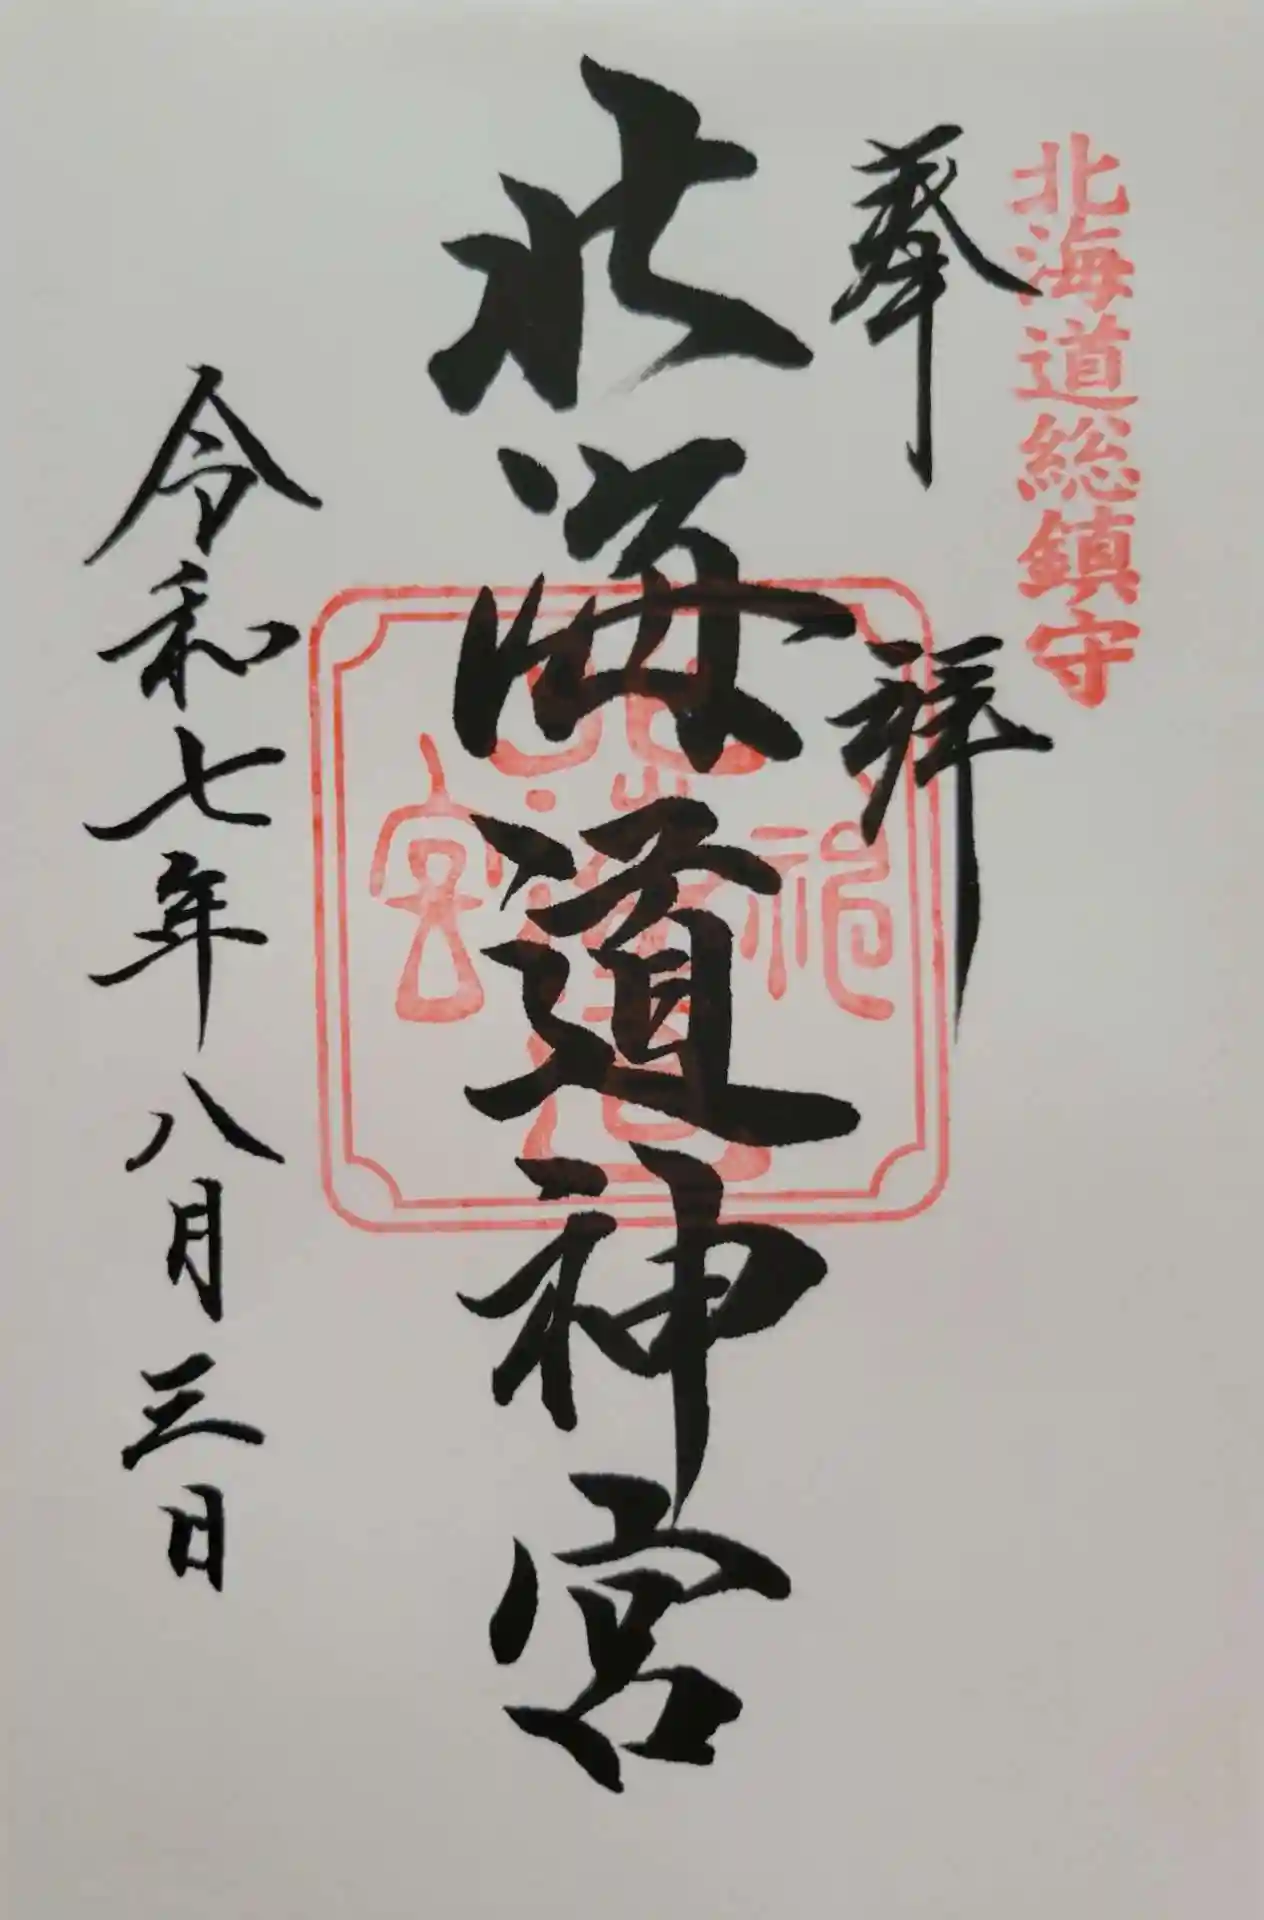 北海道総鎮守
奉拝
北海道神宮
令和七年八月三日